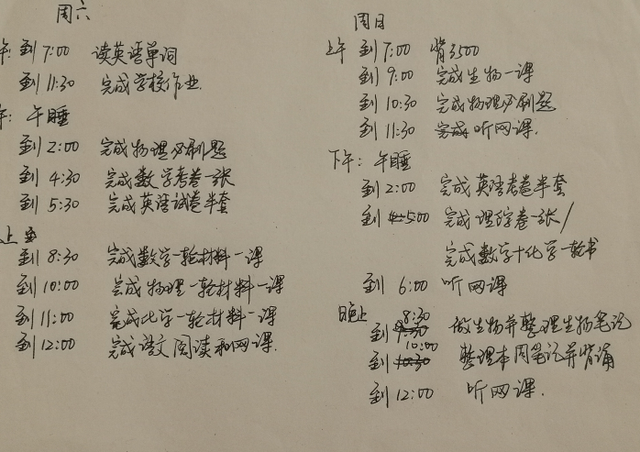 周六
午: 到 7:00 读英语单词
到 11:30 完成学校作业.
午: 午睡
到 2:00 完成物理必刷题
到 4:30 完成数学考卷一张
到 5:30 完成英语试卷半套
上
到 8:30 完成数学一轮材料一课
到 10:00 完成物理一轮材料一课
到 11:00 完成化学一轮材料一课
到 12:00 完成语文阅读和网课.
周日
上午 到 7:00 背3500
到 9:00 完成生物一课
到 10:30 完成物理必刷题
到 11:30 完成听网课.
下午: 午睡
到 2:00 完成英语考卷半套
到 5:00 完成理综卷一张/
完成数学十化学一轮书
到 6:00 听网课
晚上 8:30
到 7:30 做生物并整理生物笔记
10:00
到 10:30 整理本周笔记并背诵
到 12:00 听网课.